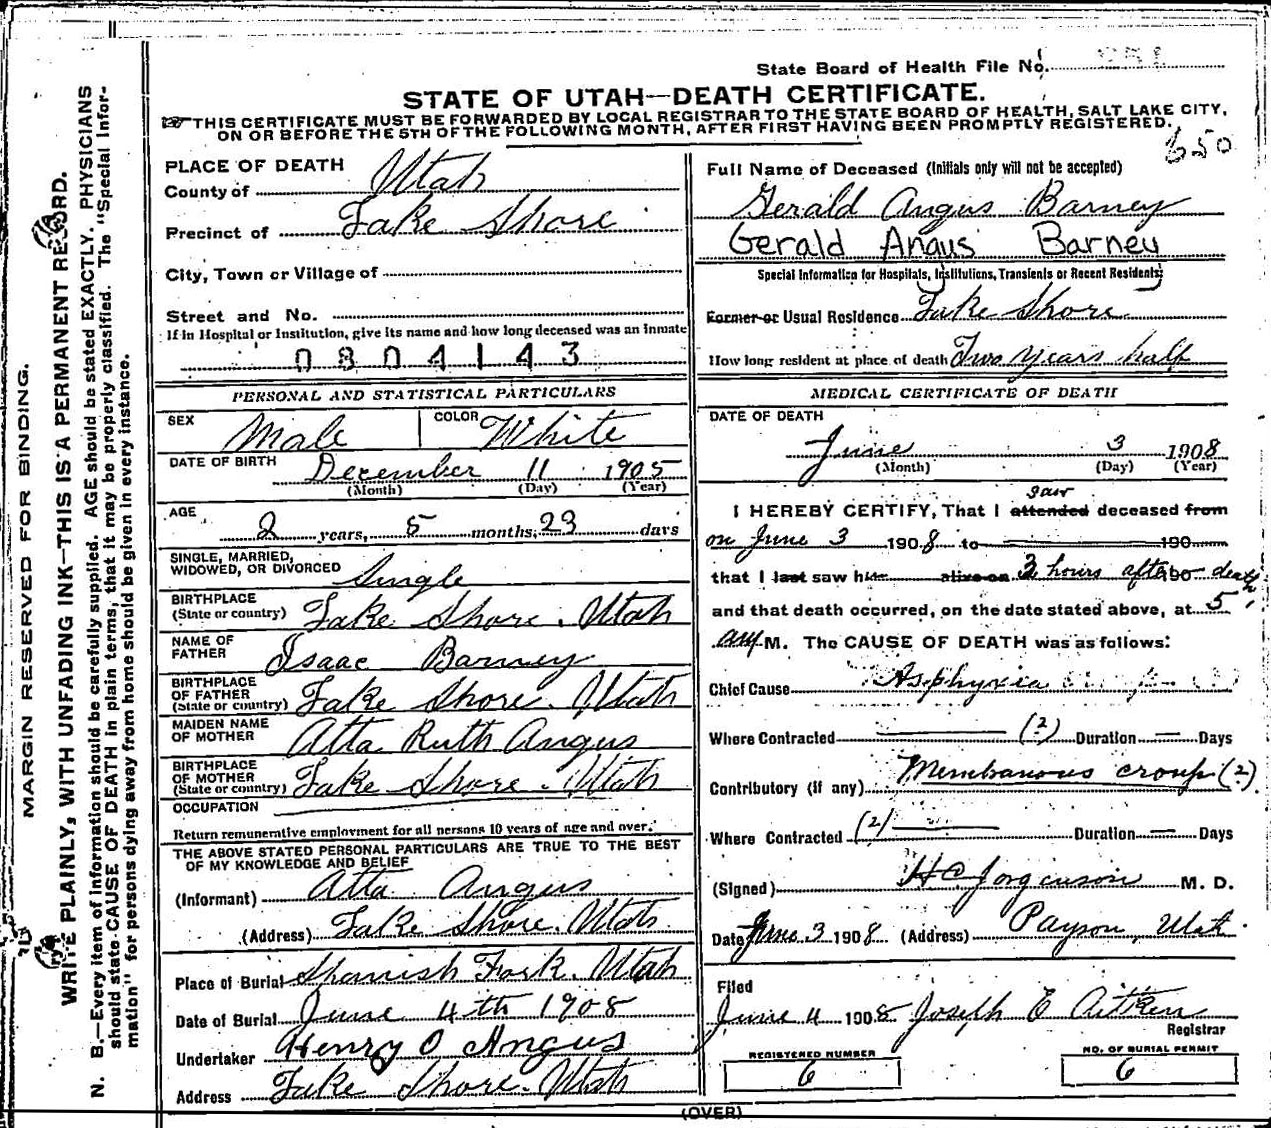 State Board of Health File No. 
STATE OF UTAH—DEATH CERTIFICATE.
THIS CERTIFICATE MUST BE FORWARDED BY LOCAL REGISTRAR TO THE STATE BOARD OF HEALTH, SALT LAKE CITY,
ON OR BEFORE THE 5TH OF THE FOLLOWING MONTH, AFTER FIRST HAVING BEEN PROMPTLY REGISTERED.
650
MARGIN RESERVED FOR BINDING.
WRITE PLAINLY, WITH UNFADING INK—THIS IS A PERMANENT RECORD.
N. B.—Every item of information should be carefully supplied. AGE should be stated EXACTLY. PHYSICIANS
should state CAUSE OF DEATH in plain terms, that it may be properly classified. The "Special Infor-
mation" for persons dying away from home should be given in every instance.
PLACE OF DEATH
County of Utah
Precinct of Lake Shore
City, Town or Village of
Street and No.
If in Hospital or Institution, give its name and how long deceased was an inmate
0804143
PERSONAL AND STATISTICAL PARTICULARS
SEX Male COLOR White
DATE OF BIRTH December 11 1905
(Month) (Day) (Year)
AGE 2 years, 5 months, 23 days
SINGLE, MARRIED,
WIDOWED, OR DIVORCED Single
BIRTHPLACE
(State or country) Lake Shore. Utah
NAME OF
FATHER Isaac Barney
BIRTHPLACE
OF FATHER
(State or country) Lake Shore. Utah
MAIDEN NAME
OF MOTHER Atta Ruth Angus
BIRTHPLACE
OF MOTHER
(State or country) Lake Shore. Utah
OCCUPATION
Return remunerative employment for all persons 10 years of age and over.
THE ABOVE STATED PERSONAL PARTICULARS ARE TRUE TO THE BEST
OF MY KNOWLEDGE AND BELIEF
(Informant) Atta Angus
(Address) Lake Shore. Utah
Place of Burial Spanish Fork. Utah
Date of Burial June 4th 1908
Undertaker Henry O Angus
Address Lake Shore. Utah
Full Name of Deceased (Initials only will not be accepted)
Gerald Angus Barney
Gerald Angus Barney
Special Information for Hospitals, Institutions, Transients or Recent Residents;
Former or Usual Residence Lake Shore
How long resident at place of death Two years half
MEDICAL CERTIFICATE OF DEATH
DATE OF DEATH
June 3 1908
(Month) (Day) (Year)
saw
I HEREBY CERTIFY, That I attended deceased from
on June 3 1908 to 190
that I last saw him alive on 3 hours after 190 death
and that death occurred, on the date stated above, at 5
am M. The CAUSE OF DEATH was as follows:
Chief Cause Asphyxia
Where Contracted (?) Duration — Days
Contributory (if any) Membranous croup (?)
Where Contracted (?) Duration — Days
(Signed) H C Jorginson M. D.
Date June 3 1908 (Address) Payson, Utah
Filed
June 4 1908 Joseph E Aitken
Registrar
REGISTERED NUMBER
6
NO. OF BURIAL PERMIT
6
(OVER)